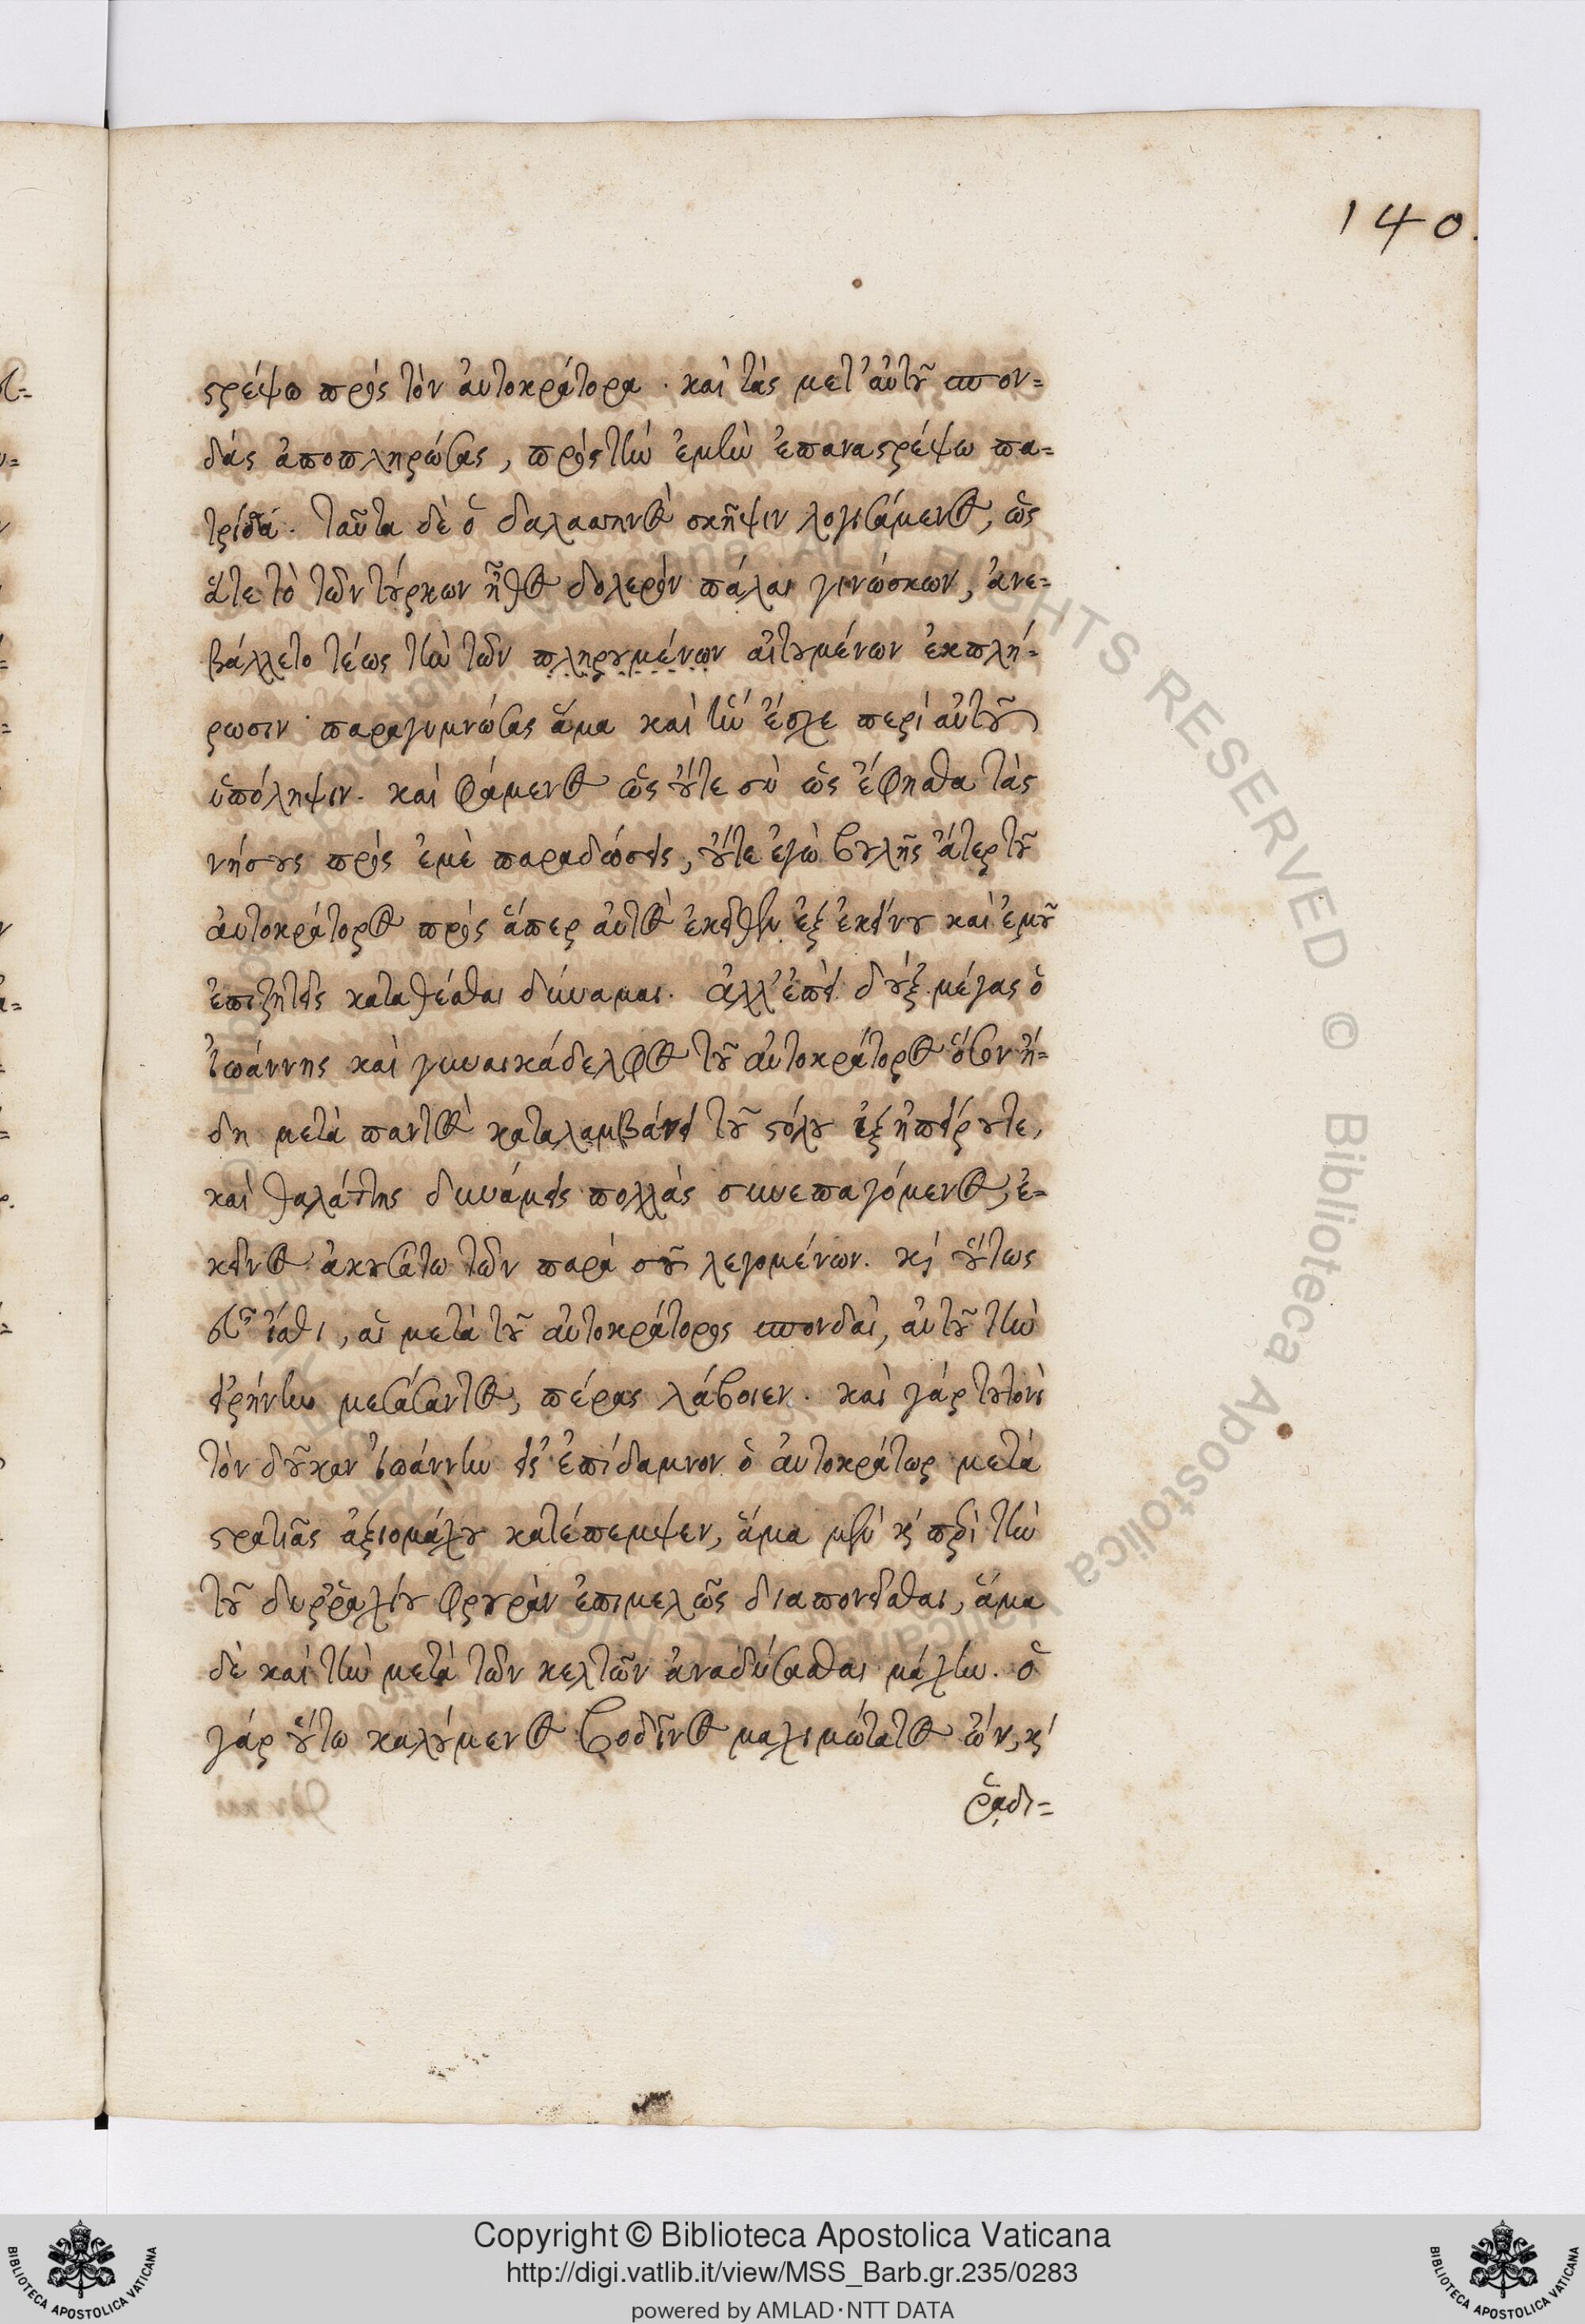 140.
στρέψω πρὸς τὸν αὐτοκράτορα · καὶ τὰς μετ' αὐτοῦ σπον=
δὰς ἀποπληρώσας, πρὸς τὴν ἐμὴν ἐπαναστρέψω πα=
τρίδα. ταῦτα δὲ ὁ δαλασσηνὸς σκῆψιν λογισάμενος, ὡς
ἅτε τὸ τῶν τούρκων ἦθος δολερὸν πάλαι γινώσκων, ἀνε=
βάλλετο τέως τὴν τῶν πληρουμένων αἰτουμένων ἐκπλή=
ρωσιν· παραγυμνώσας ἅμα καὶ ἣν ἔσχε περὶ αὐτοῦ
ὑπόληψιν. καὶ φάμενος ὡς οὔτε σὺ ὡς ἔφησθα τὰς
νήσους πρὸς ἐμὲ παραδώσεις, οὔτε ἐγὼ βουλῆς ἄτερ τοῦ
αὐτοκράτορος πρὸς ἅπερ αὐτὸς ἐκεῖθεν ἐξ ἐκείνου καὶ ἐμοῦ
ἐπιζητεῖς καταθέσθαι δύναμαι. ἀλλ' ἐπεὶ δοὺξ μέγας ὁ
ἰωάννης καὶ γυναικάδελφος τοῦ αὐτοκράτορος ὅσον ἤ=
δη μετὰ παντὸς καταλαμβάνει τοῦ στόλου ἐξ ἠπείρου τε,
καὶ θαλάττης δυνάμεις πολλὰς συνεπαγόμενος, ἐ=
κεῖνος ἀκουσάτω τῶν παρὰ σοῦ λεγομένων. κὶ οὕτως
εὖ ἴσθι, αἱ μετὰ τοῦ αὐτοκράτορος σπονδαὶ, αὐτοῦ τὴν
εἰρήνην μεσάσαντος, πέρας λάβοιεν. καὶ γὰρ τουτονὶ
τὸν δοῦκαν ἰωάννην εἰς ἐπίδαμνον ὁ αὐτοκράτωρ μετὰ
στρατιᾶς ἀξιομάχου κατέπεμψεν, ἅμα μὲν κὶ περὶ τὴν
τοῦ δυῤῥαχίου φρουρὰν ἐπιμελῶς διαπονεῖσθαι, ἅμα
δὲ καὶ τὴν μετὰ τῶν κελτῶν ἀναδύσασθαι μάχην. ὁ
γὰρ οὕτω καλούμενος βοδῖνος μαχιμώτατος ὢν, κὶ
ῥαδι=
Copyright © Biblioteca Apostolica Vaticana
http://digi.vatlib.it/view/MSS_Barb.gr.235/0283
powered by AMLAD·NTT DATA